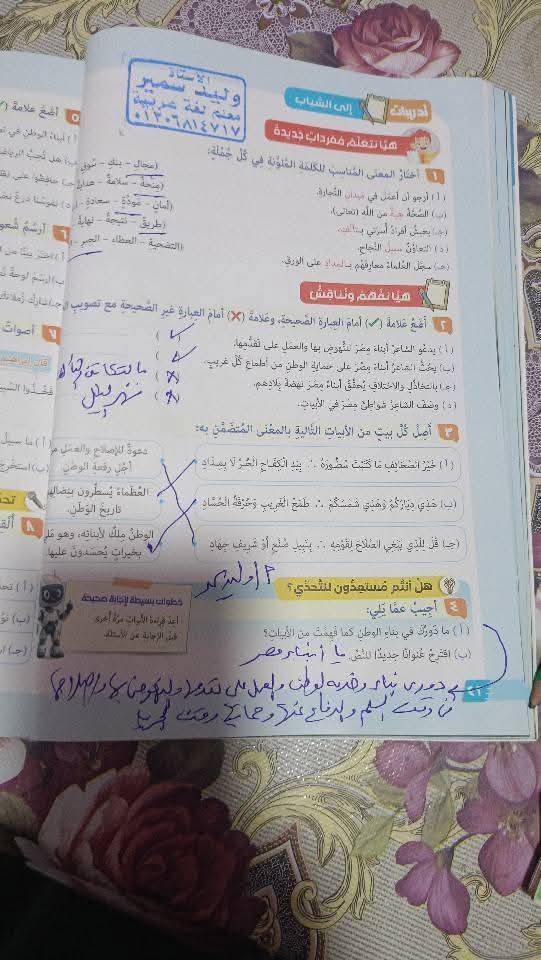 تدريبات
إلى الشباب
الأستاذ
وليد سمير
معلم لغة عربية
٠١٢٠٦٨١٤٧١٧
هيا نتعلم مفردات جديدة
١ أختار المعنى المناسب للكلمة الملونة في كل جملة:
(أ) أرجو أن أعمل في ميدان التجارة. (مجال - بنك - سوق
(ب) الصحة هبة من الله (تعالى). (منحة - سلامة - هداية
(جـ) يعيش أفراد أسرتي بـتآلف. (أمان - مودة - سعادة
(د) التعاون سبيل النجاح. (طريق - نتيجة - نهاية
(هـ) سجل العلماء معارفهم بـالمداد على الورق. (التضحية - العطاء - الحبر
هيا نفهم ونناقش
٢ أضع علامة (✓) أمام العبارة الصحيحة، وعلامة (✗) أمام العبارة غير الصحيحة مع تصويب
(أ) يدعو الشاعر أبناء مصر للنهوض بها والعمل على تقدمها.
(ب) يحث الشاعر أبناء مصر على حماية الوطن من أطماع كل غريب.
(جـ) بالتخاذل والاختلاف يحقق أبناء مصر نهضة بلادهم.
(د) وصف الشاعر شواطئ مصر في الأبيات.
نهر النيل
٣ أصل كل بيت من الأبيات التالية بالمعنى المتضمن به:
(أ) خير الصحائف ما كتبت سطوره ∴ بيد الكفاح الحر لا بمداد
دعوة للإصلاح والعمل من
أجل رفعة الوطن
(ب) هذي دياركم وهذي شمسكم ∴ طمع الغريب وحرقة الحساد
العظماء يسطرون بنضالهم
تاريخ الوطن.
(جـ) قل للذي يبغي الصلاح لقومه ∴ بنبيل صنع أو شريف جهاد
الوطن ملك لأبنائه، وهو مليء
بخيرات يحسدون عليها
هل أنتم مستعدون للتحدي؟
٤ أجيب عما يلي:
(أ) ما دورك في بناء الوطن كما فهمت من الأبيات؟
(ب) اقترح عنوانًا جديدًا للنص. يا أبناء مصر
خطوات بسيطة لإجابة صحيحة
أعد قراءة الأبيات مرة أخرى
قبل الإجابة عن الأسئلة.
دوري بناء وخدمة الوطن والعمل على تقدمها والنهوض بها
في وقت السلم والدفاع عنها وحمايتها وقت الحرب
٥ أضع علامة
٦ أرسم
٧ أصوات
٨